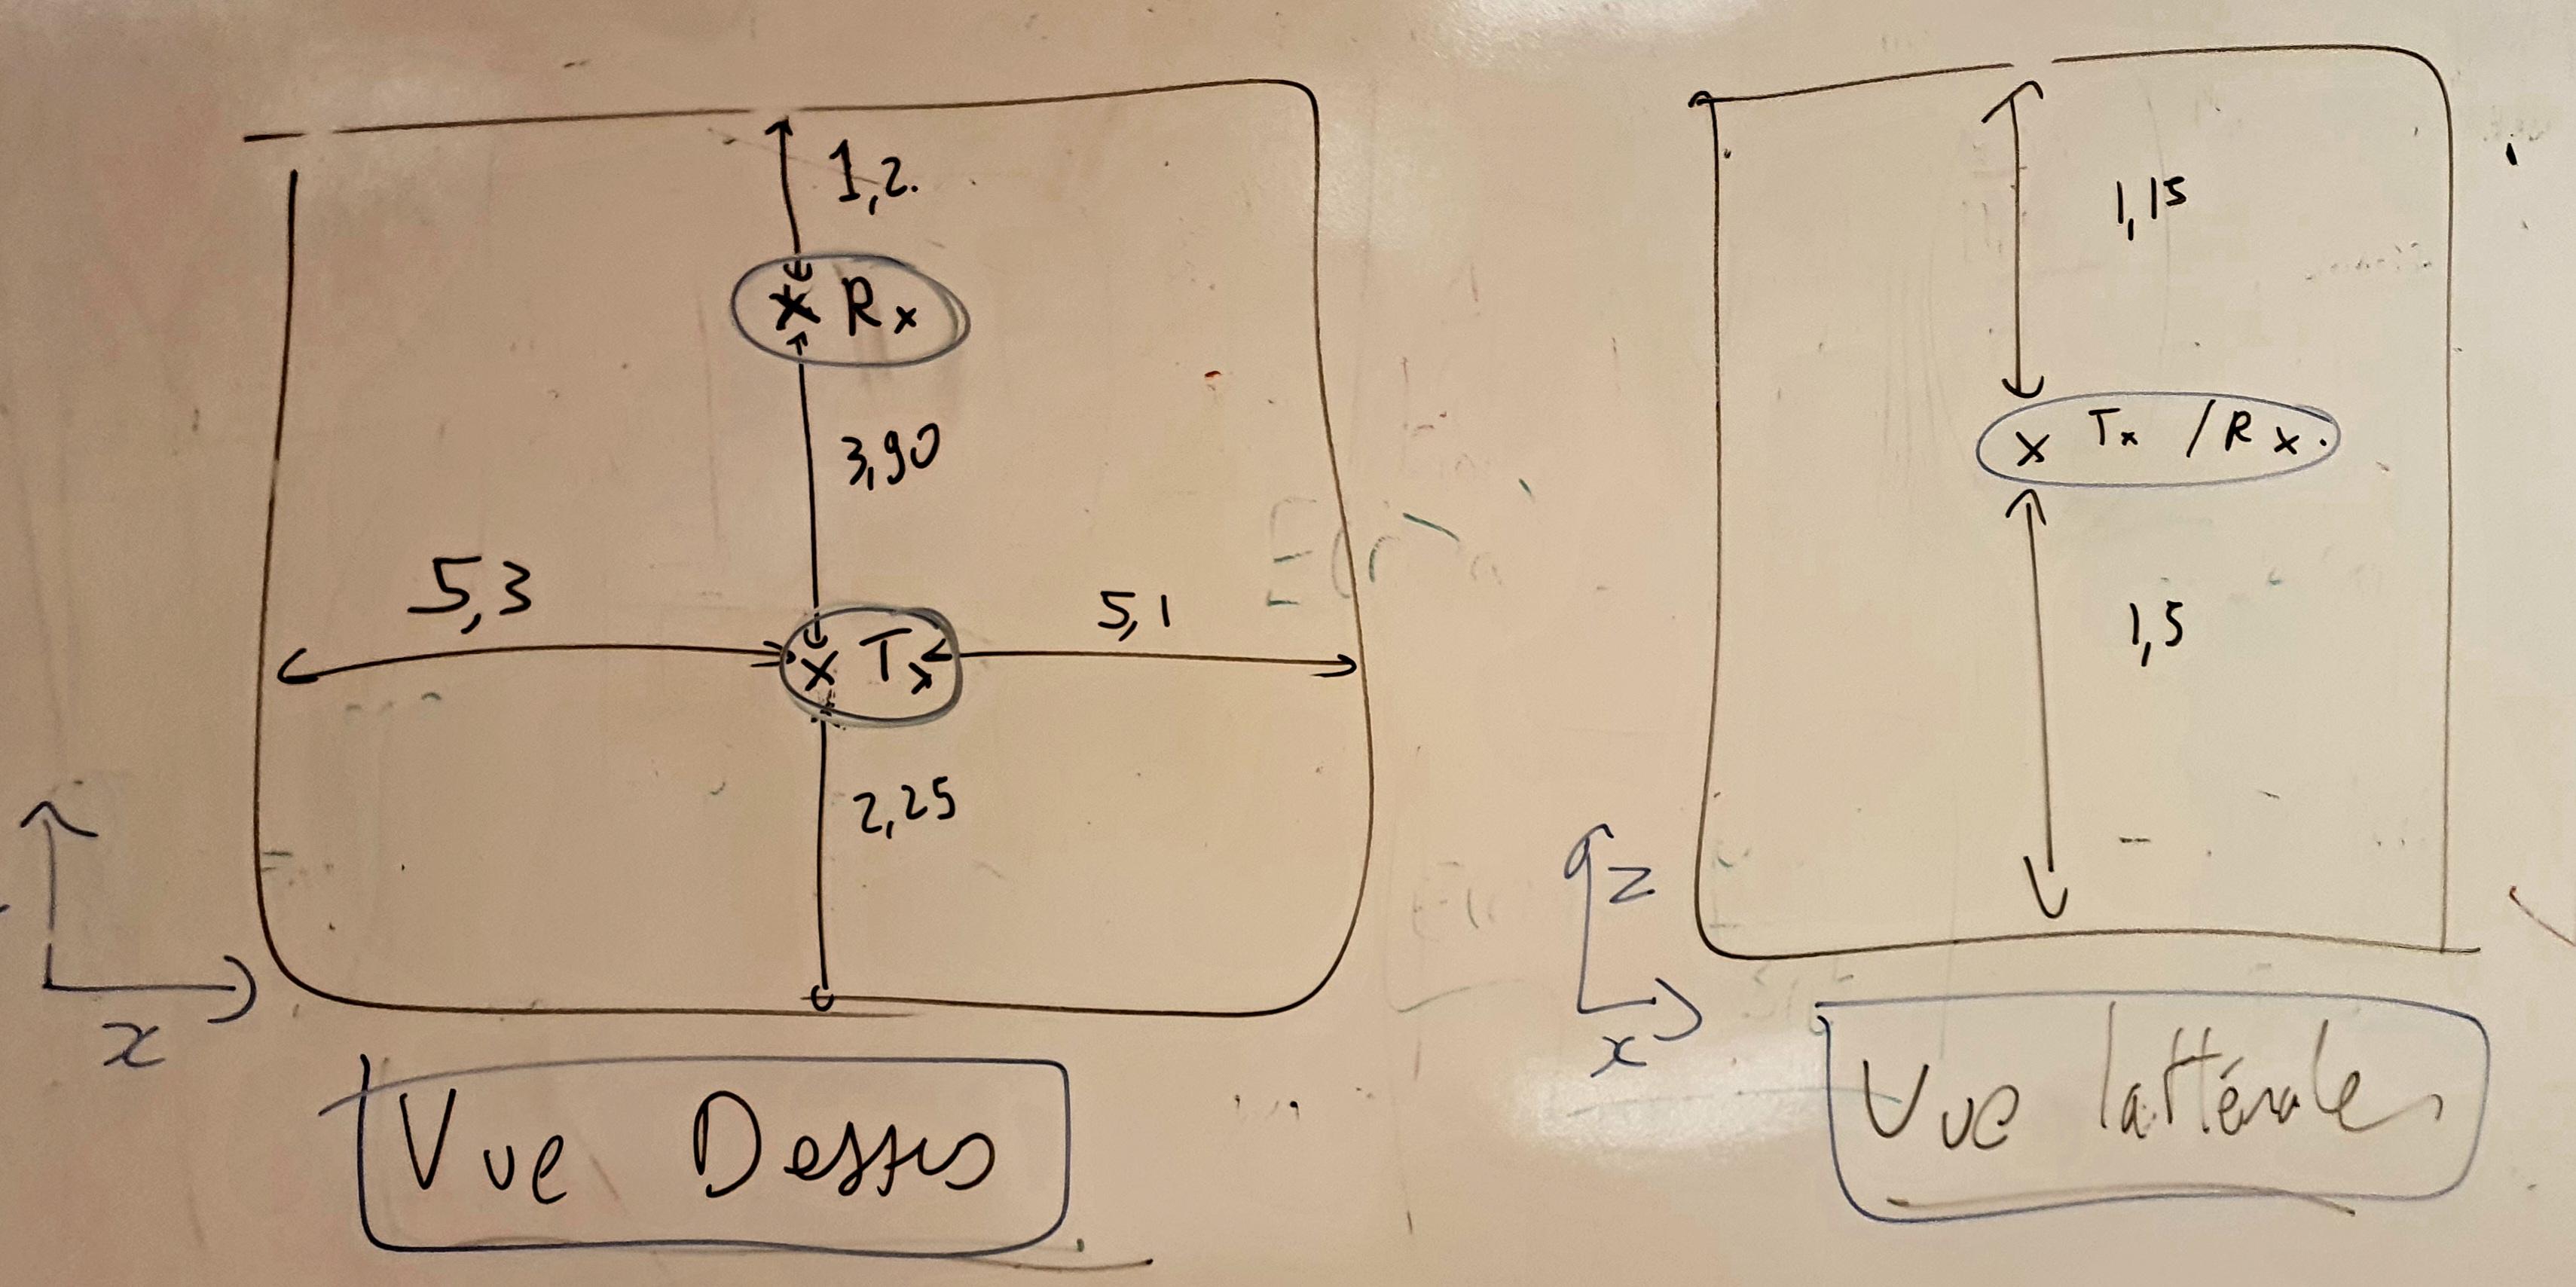 1,2.
x Rx
3,90
5,3
5,1
x Tx
2,25
x
Vue Dessus
1,15
x Tx / Rx.
1,5
z
x
Vue lattérales